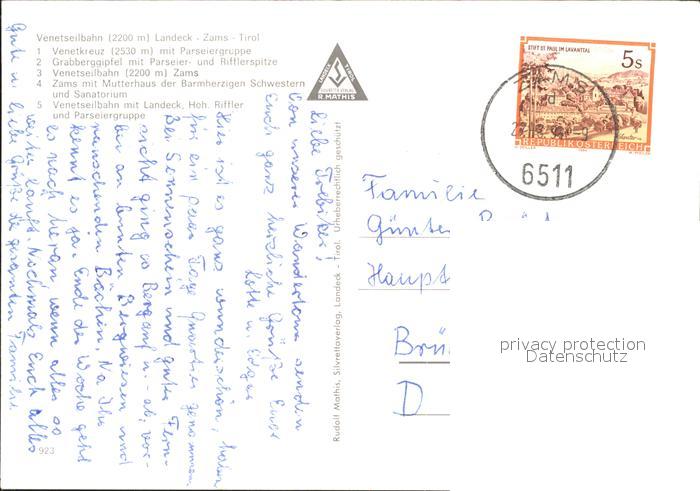 Venetseilbahn (2200 m) Landeck - Zams - Tirol
1 Venetkreuz (2530 m) mit Parseiergruppe
2 Grabberggipfel mit Parseier- und Rifflerspitze
3 Venetseilbahn (2200 m) Zams
4 Zams mit Mutterhaus der Barmherzigen Schwestern
und Sanatorium
5 Venetseilbahn mit Landeck, Hoh. Riffler
und Parseiergruppe
R. MATHIS
STIFT ST. PAUL IM LAVANTTAL
5s
REPUBLIK ÖSTERREICH
ZAMS
6511
Rudolf Mathis, Silvrettaverlag, Landeck - Tirol. Urheberrechtlich geschützt!
Familie
Günter
Haupt
Brü
D
privacy protection
Datenschutz
Liebe
Von unserer Wandertour senden
Euch ganz herzliche Grüße Eure
Lotte u. Edgar
Hier ist es ganz wunderschön, haben
für ein paar Tage Quartier genommen.
Bei Sonnenschein und guter Fern-
sicht ging es Bergauf u. -ab, vor-
bei an bunten Bergwiesen und
rauschenden Bächen. Na Ihr
kennt es ja. Ende der Woche geht
es nach Meran, wenn alles so
weiter läuft. Nochmals Euch alles
Gute u. liebe Grüße der gesamten Familie.
923